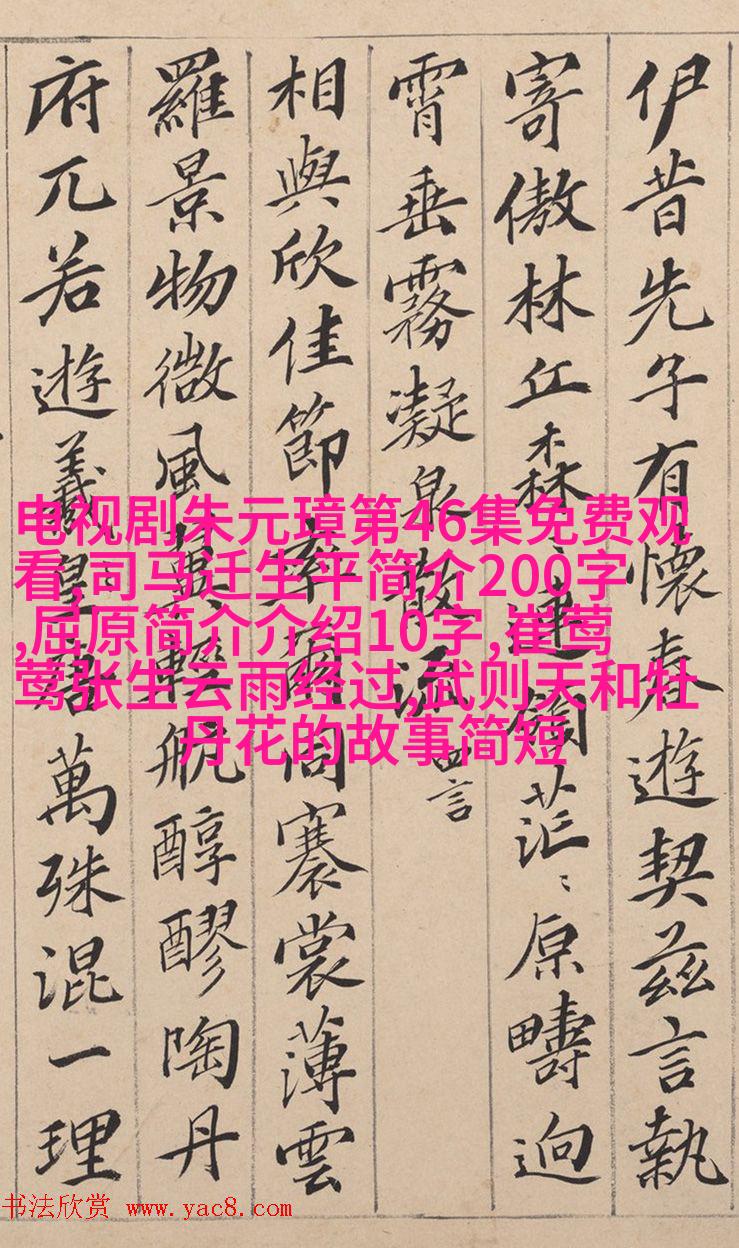 伊昔先子有懷春遊契茲言執
寄傲林丘森〻連領茫〻原疇逈
霄垂霧凝泉散流
四言
相與欣佳節率爾同褰裳薄雲
羅景物微風翼輕航醇醪陶丹
府兀若遊羲皇君萬殊混一理
电视剧朱元璋第46集免费观
看,司马迁生平简介200字
,屈原简介介绍10字,崔莺
莺张生云雨经过,武则天和牡
丹花的故事简短
书法欣赏 www.yac8.com